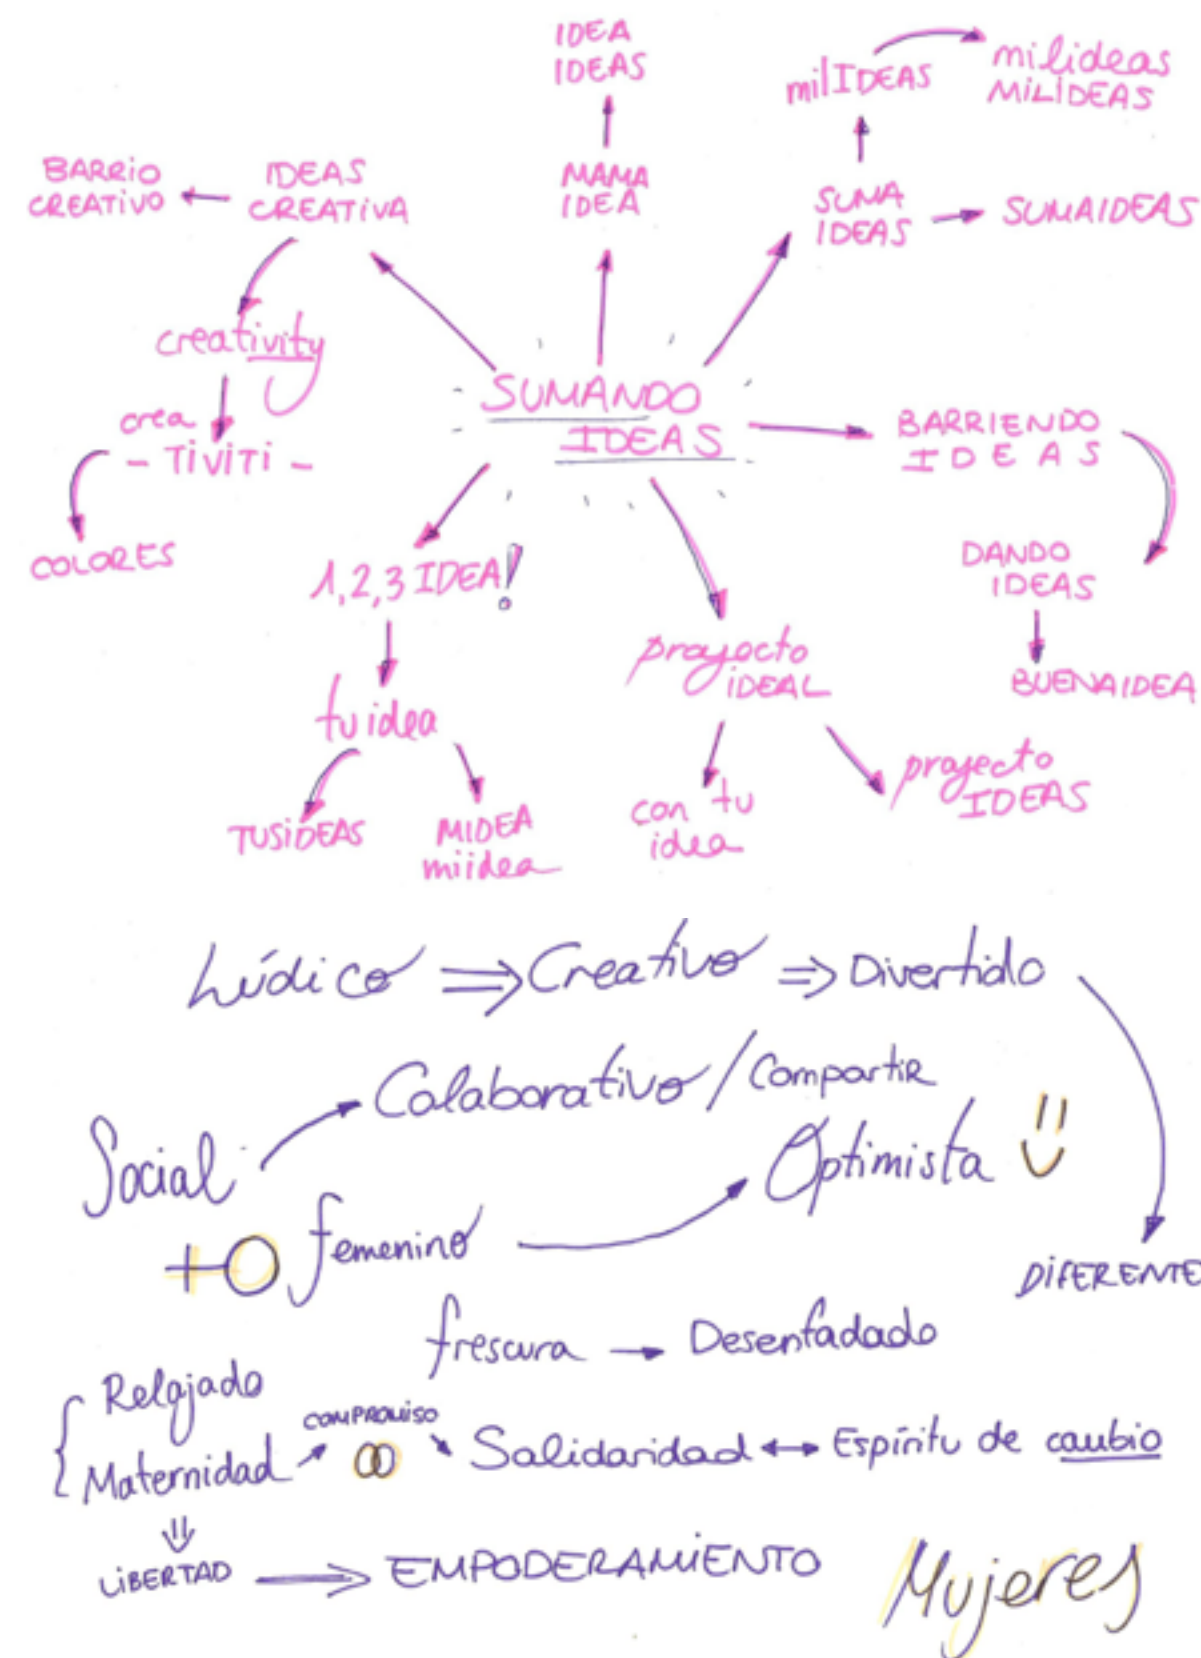 IDEA
IDEAS
milIDEAS
milideas
MILIDEAS
BARRIO
CREATIVO
IDEAS
CREATIVA
MAMA
IDEA
SUMA
IDEAS
SUMAIDEAS
creativity
crea
- TiViTi -
COLORES
SUMANDO
IDEAS
BARRIENDO
IDEAS
DANDO
IDEAS
BUENAIDEA
1,2,3 IDEA!
tu idea
TUSIDEAS
MIDEA
miidea
proyecto
IDEAL
con tu
idea
proyecto
IDEAS
Lúdico ⇒ Creativo ⇒ Divertido
Colaborativo / Compartir
Social
Optimista
femenino
DIFERENTE
frescura → Desenfadado
Relajado
Maternidad
COMPROMISO
Solidaridad ↔ Espíritu de cambio
LIBERTAD ⇒ EMPODERAMIENTO
Mujeres